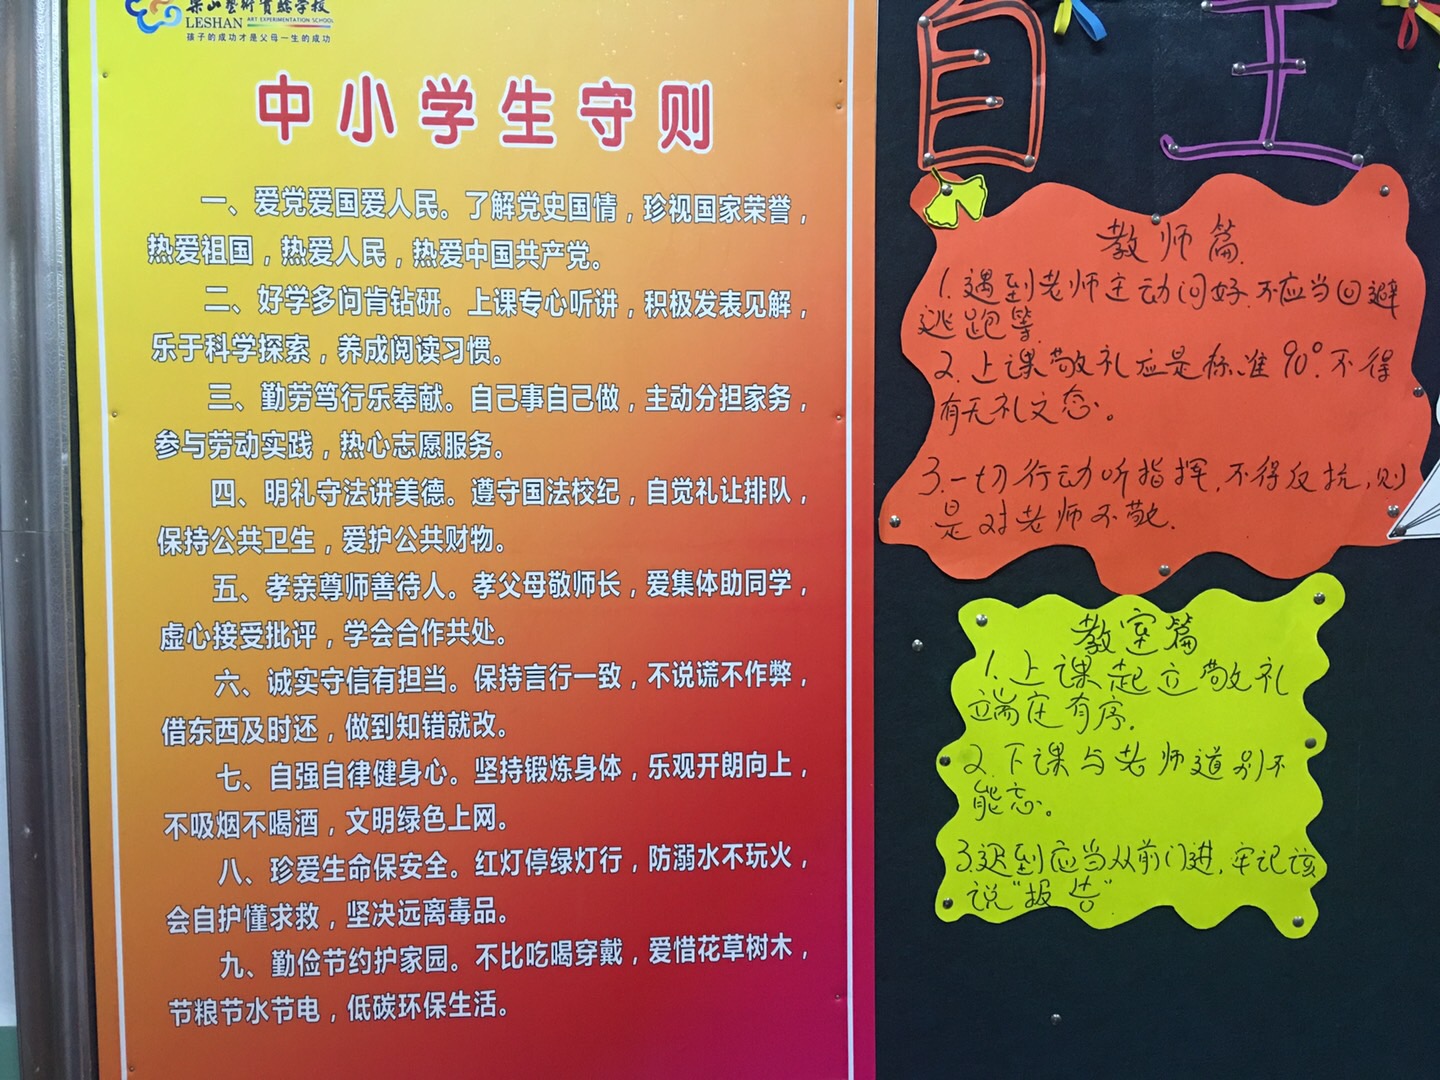 乐山艺术实验学校
LESHAN ART EXPERIMENTATION SCHOOL
孩子的成功才是父母一生的成功
中小学生守则
一、爱党爱国爱人民。了解党史国情，珍视国家荣誉，
热爱祖国，热爱人民，热爱中国共产党。
二、好学多问肯钻研。上课专心听讲，积极发表见解，
乐于科学探索，养成阅读习惯。
三、勤劳笃行乐奉献。自己事自己做，主动分担家务，
参与劳动实践，热心志愿服务。
四、明礼守法讲美德。遵守国法校纪，自觉礼让排队，
保持公共卫生，爱护公共财物。
五、孝亲尊师善待人。孝父母敬师长，爱集体助同学，
虚心接受批评，学会合作共处。
六、诚实守信有担当。保持言行一致，不说谎不作弊，
借东西及时还，做到知错就改。
七、自强自律健身心。坚持锻炼身体，乐观开朗向上，
不吸烟不喝酒，文明绿色上网。
八、珍爱生命保安全。红灯停绿灯行，防溺水不玩火，
会自护懂求救，坚决远离毒品。
九、勤俭节约护家园。不比吃喝穿戴，爱惜花草树木，
节粮节水节电，低碳环保生活。
自主
教师篇
1.遇到老师主动问好.不应当回避
逃跑等.
2.上课敬礼应是标准90°.不得
有无礼之态。
3.一切行动听指挥,不得反抗,则
是对老师不敬.
教室篇
1.上课起立敬礼
端庄有序.
2.下课与老师道别不
能忘。
3.迟到应当从前门进,牢记该
说"报告"